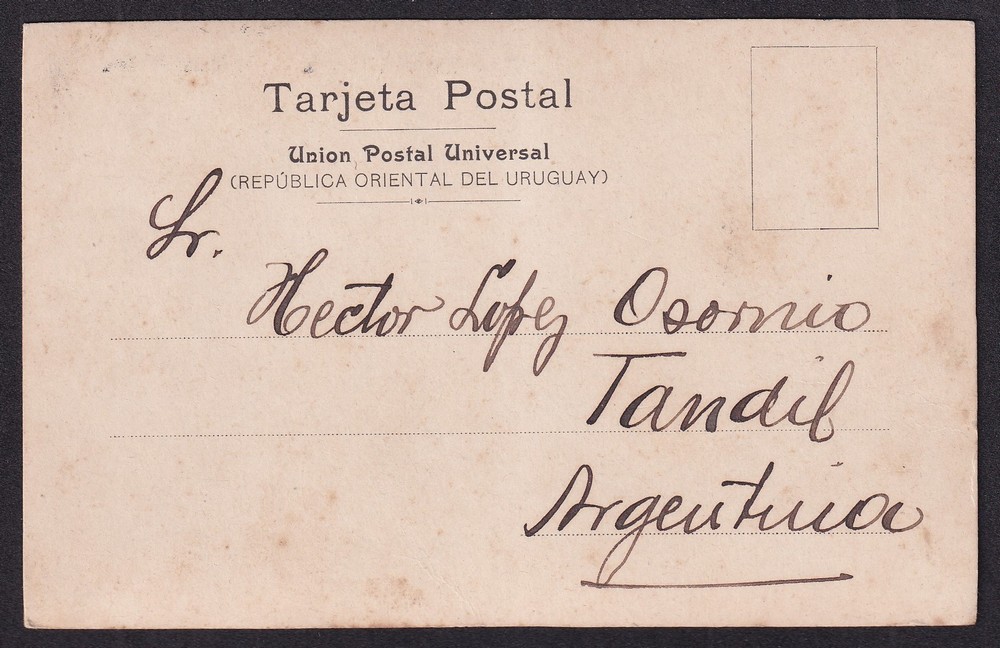 Tarjeta Postal
Union Postal Universal
(REPÚBLICA ORIENTAL DEL URUGUAY)
Sr.
Hector Lopez Osornio
Tandil
Argentina